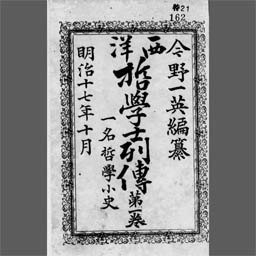 特21
162
今野一英編纂
西洋
哲學士列傳
第一卷
一名哲學小史
明治十七年十月